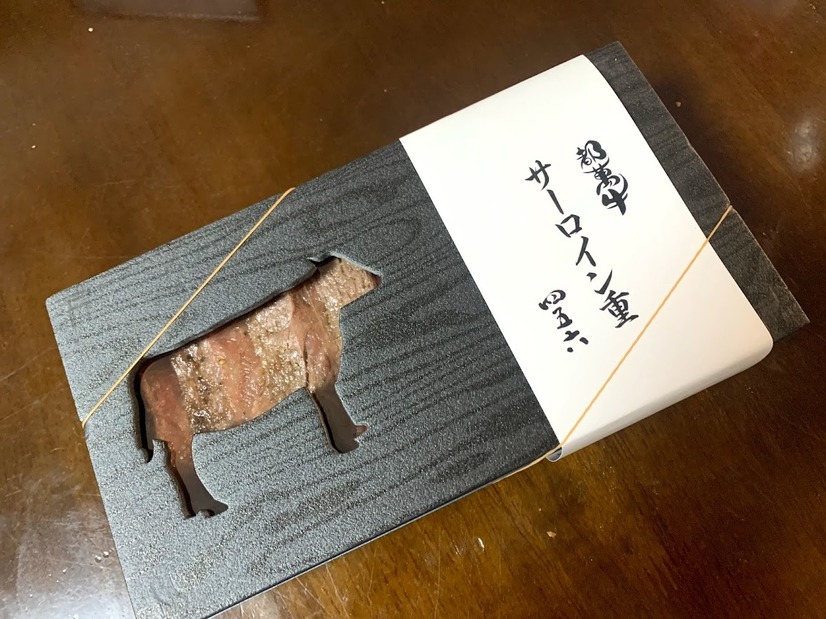 都萬牛
サーロイン重
四五六